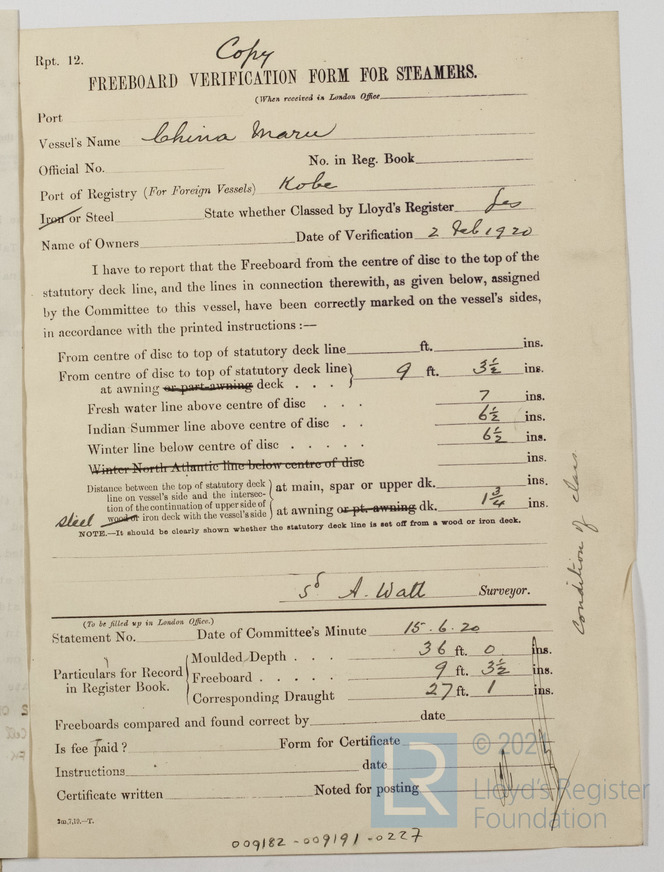 Rpt. 12. Copy
FREEBOARD VERIFICATION FORM FOR STEAMERS.
(When received in London Office
Port
Vessel's Name China Maru
Official No. No. in Reg. Book
Port of Registry (For Foreign Vessels) Kobe
Iron or Steel State whether Classed by Lloyd's Register Yes
Name of Owners Date of Verification 2 Feb 1920
I have to report that the Freeboard from the centre of disc to the top of the
statutory deck line, and the lines in connection therewith, as given below, assigned
by the Committee to this vessel, have been correctly marked on the vessel's sides,
in accordance with the printed instructions :—
From centre of disc to top of statutory deck line ft. ins.
From centre of disc to top of statutory deck line
at awning or part-awning deck . . . 9 ft. 3½ ins.
Fresh water line above centre of disc . . . 7 ins.
Indian Summer line above centre of disc . . 6½ ins.
Winter line below centre of disc . . . . . 6½ ins.
Winter North Atlantic line below centre of disc ins.
Distance between the top of statutory deck
line on vessel's side and the intersec-
tion of the continuation of upper side of
steel wood or iron deck with the vessel's side
at main, spar or upper dk. ins.
at awning or pt. awning dk. 1¾ ins.
NOTE.—It should be clearly shown whether the statutory deck line is set off from a wood or iron deck.
Sd A. Watt Surveyor.
Condition of class
(To be filled up in London Office.)
Statement No. Date of Committee's Minute 15.6.20
Particulars for Record
in Register Book.
Moulded Depth . . . 36 ft. 0 ins.
Freeboard . . . . . 9 ft. 3½ ins.
Corresponding Draught 27 ft. 1 ins.
Freeboards compared and found correct by date
Is fee paid ? Form for Certificate
Instructions date
Certificate written Noted for posting
2m,7,19.—T.
009182-009191-0227
LR
© 2021
Lloyd's Register
Foundation